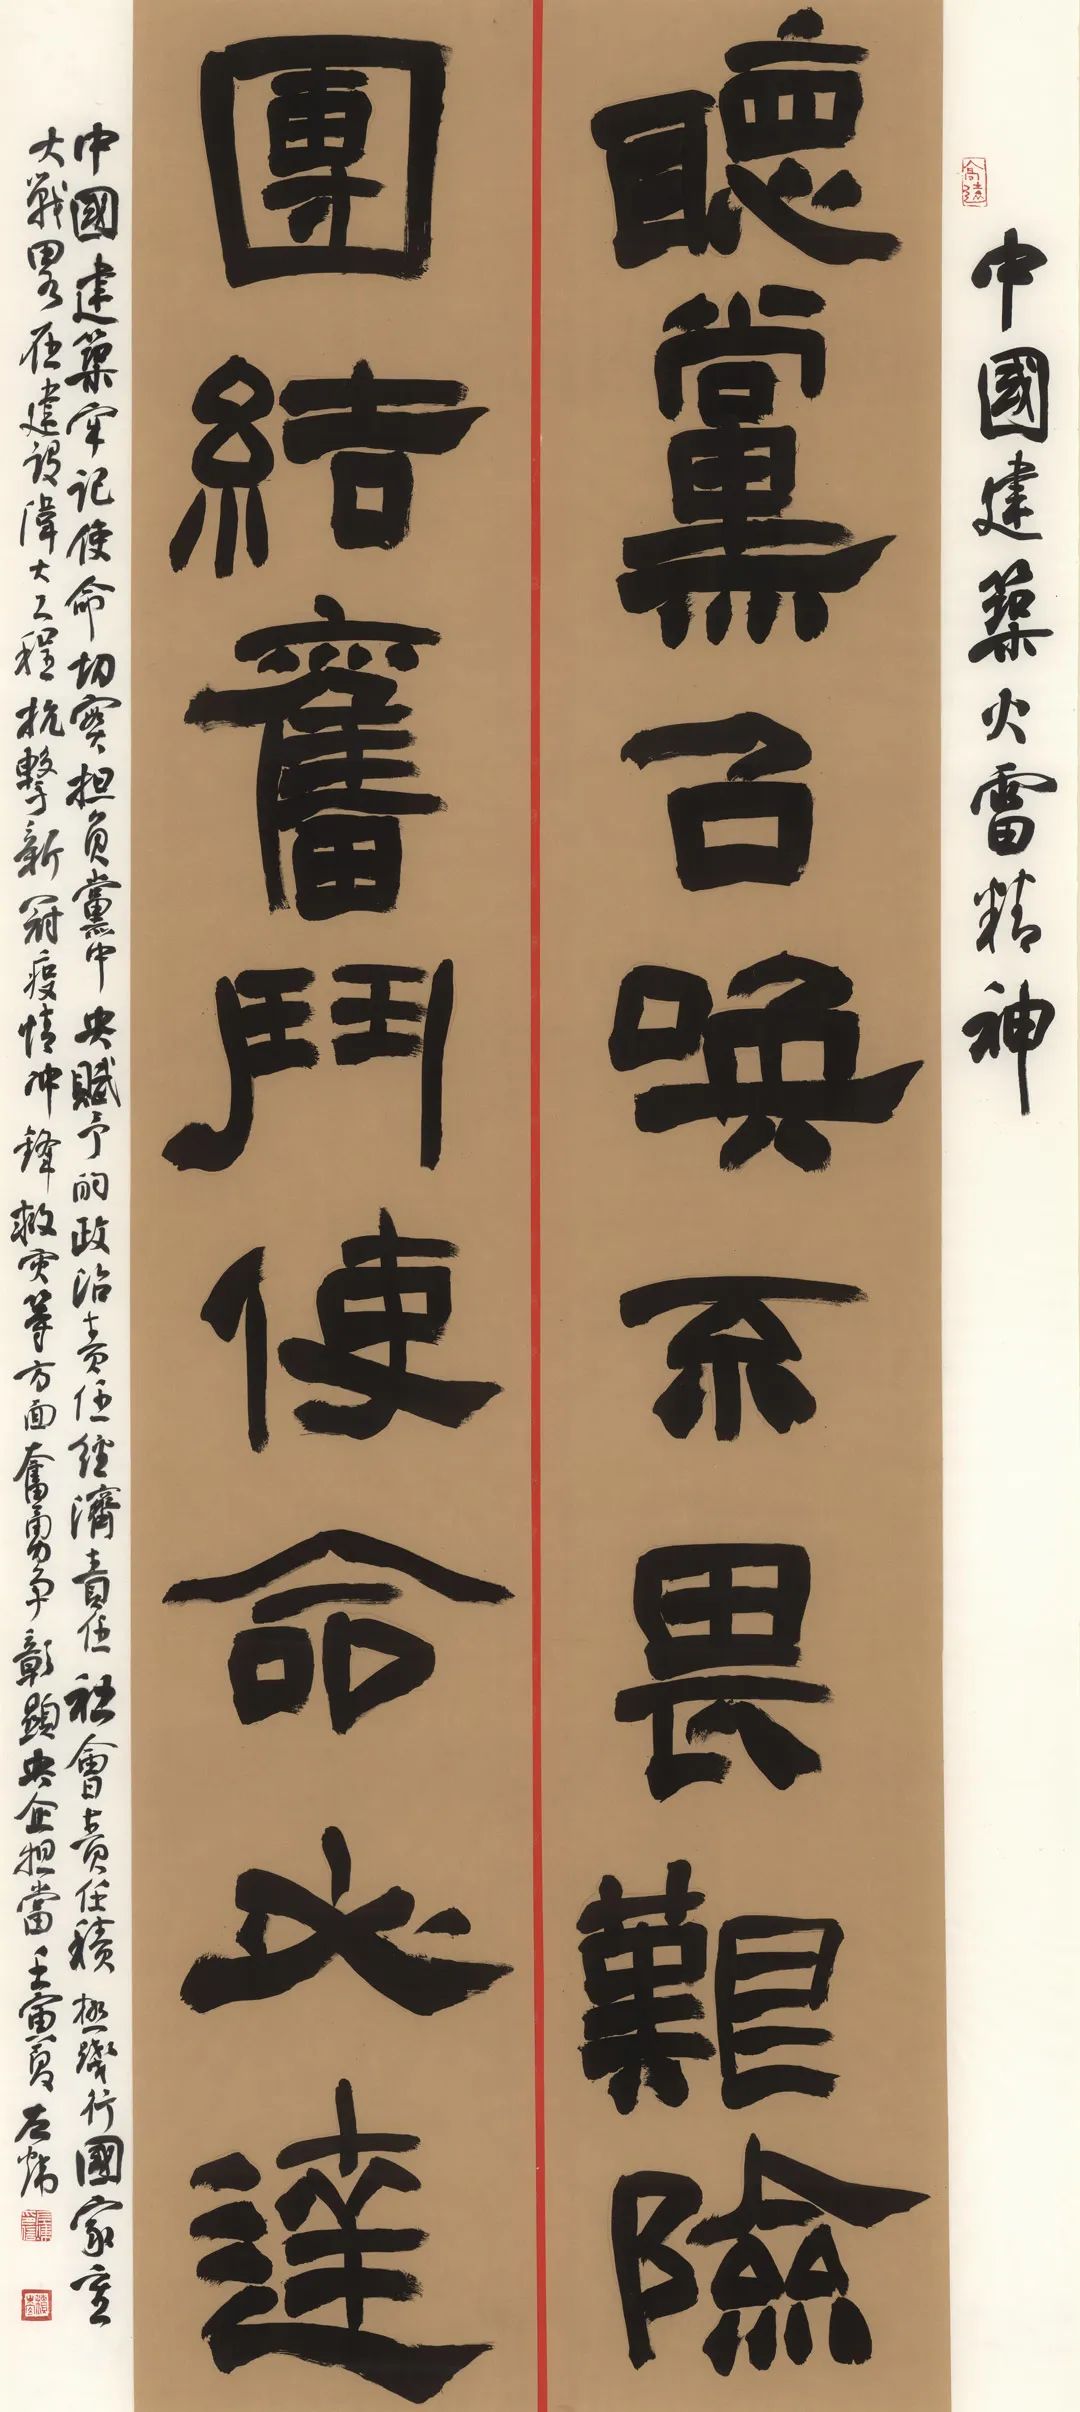 中國建築火雷精神
聽黨召喚不畏艱險
團結奮鬥使命必達
中國建築牢記使命切實担負黨中央賦予的政治責任經濟責任社會責任積極踐行國家重
大戰畧在建設偉大工程抗擊新冠疫情冲鋒救灾等方面奮勇争彰顯央企担當壬寅夏